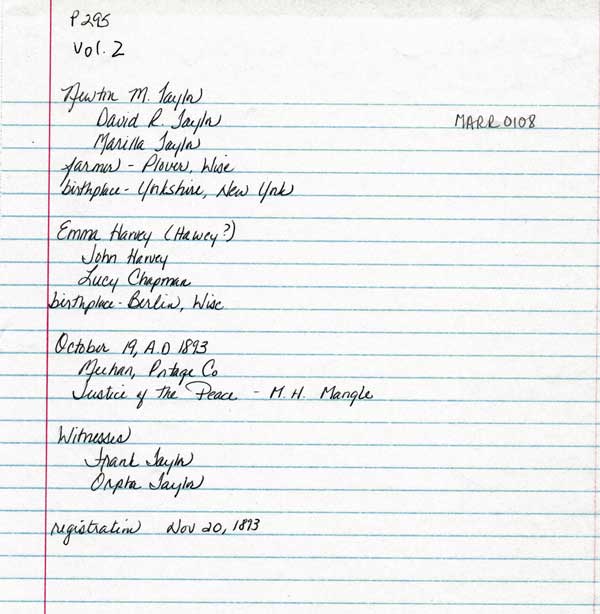 P 295
Vol. 2
Newton M. Taylor
David R. Taylor
MARR 0108
Marilla Taylor
farmer - Plover, Wisc
birthplace - Yorkshire, New York
Emma Harvey (Hawey?)
John Harvey
Lucy Chapman
birthplace - Berlin, Wisc
October 19, A.D 1893
Meehan, Portage Co
Justice of the Peace - M. H. Mangle
Witnesses
Frank Taylor
Orpha Taylor
registration Nov 20, 1893